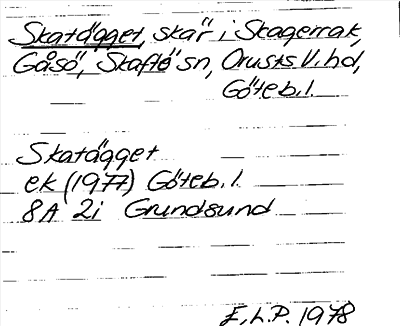 Skatägget, skär i Skagerrak,
Gåsö, Skaftö sn, Orusts V. hd,
Göteb. l.
Skatägget
ek (1977) Göteb. l.
8A 2i Grundsund
E.L.P. 1978